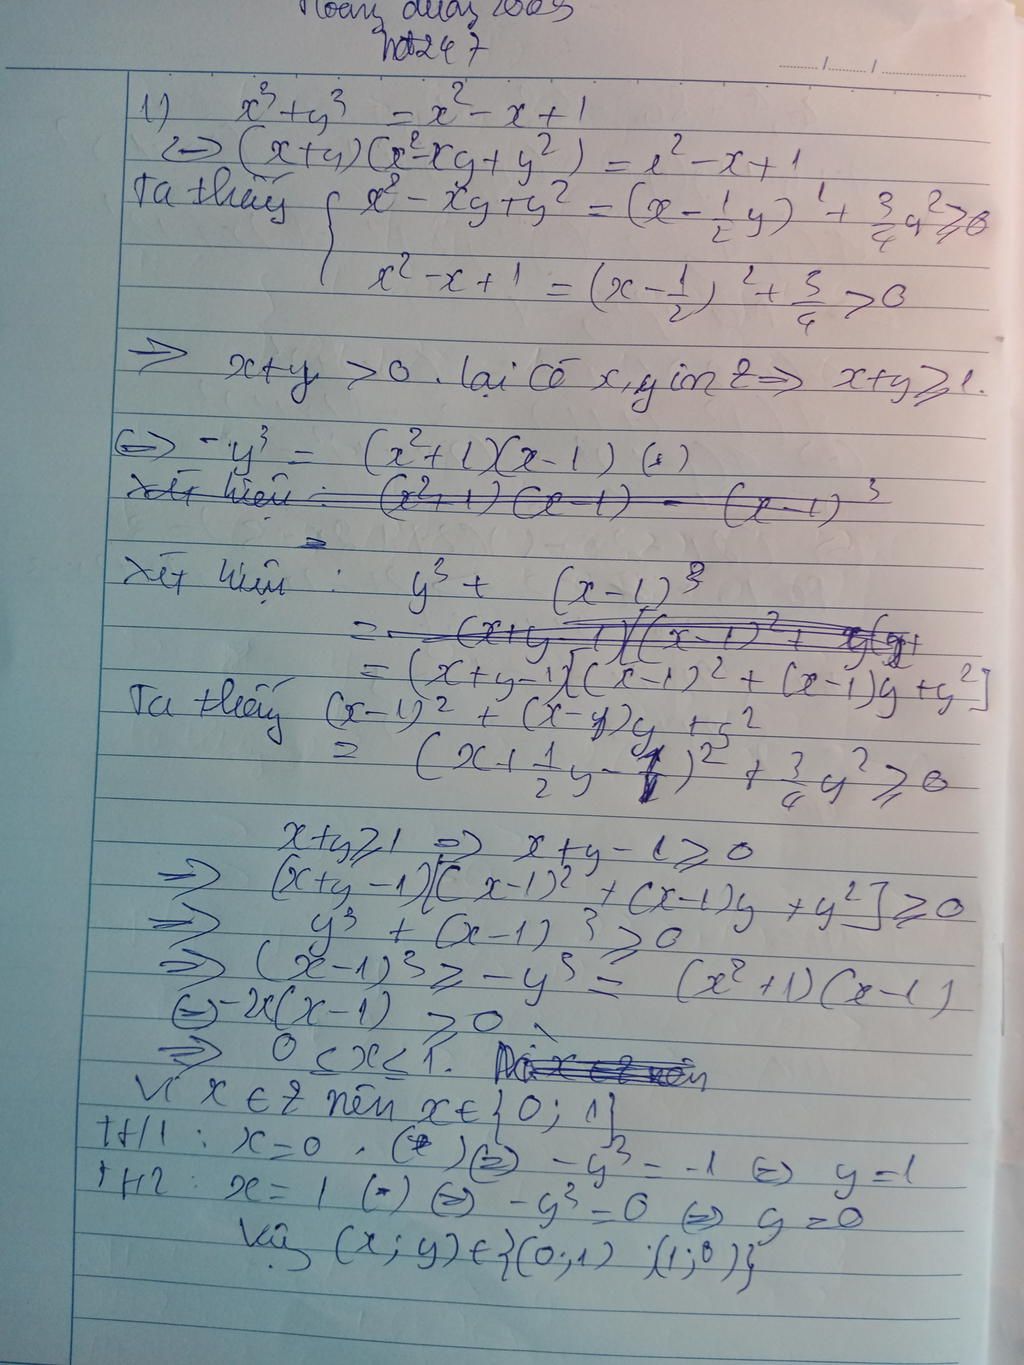 Hoàng
hot247
1) x³+y³ = x² - x + 1
<=> (x+y)(x²-xy+y²) = x² - x + 1
Ta thấy { x² - xy + y² = (x - 1/2 y)² + 3/4 y² ≥ 0
x² - x + 1 = (x - 1/2)² + 3/4 > 0
=> x+y > 0. lại có x,y in Z => x+y ≥ 1.
<=> -y³ = (x²+1)(x-1) (*)
Xét hiệu : (x²+1)(x-1) - (x-1)³
=
Xét hiệu : y³ + (x-1)³
= (x+y-1)[(x-1)² +
= (x+y-1)[(x-1)² + (x-1)y + y²]
Ta thấy (x-1)² + (x-1)y + y²
= (x + 1/2 y - 1)² + 3/4 y² ≥ 0
x+y ≥ 1 => x+y-1 ≥ 0
=> (x+y-1)[(x-1)² + (x-1)y + y²] ≥ 0
=> y³ + (x-1)³ ≥ 0
=> (x-1)³ ≥ -y³ = (x²+1)(x-1)
<=> -2x(x-1) ≥ 0
=> 0 ≤ x ≤ 1. x ∈ Z nên
Vì x ∈ Z nên x ∈ {0; 1}
TH1 : x=0 . (*) <=> -y³ = -1 <=> y = 1
TH2 : x = 1 (*) <=> -y³ = 0 <=> y = 0
Vậy (x; y) ∈ {(0;1) ;(1;0)}